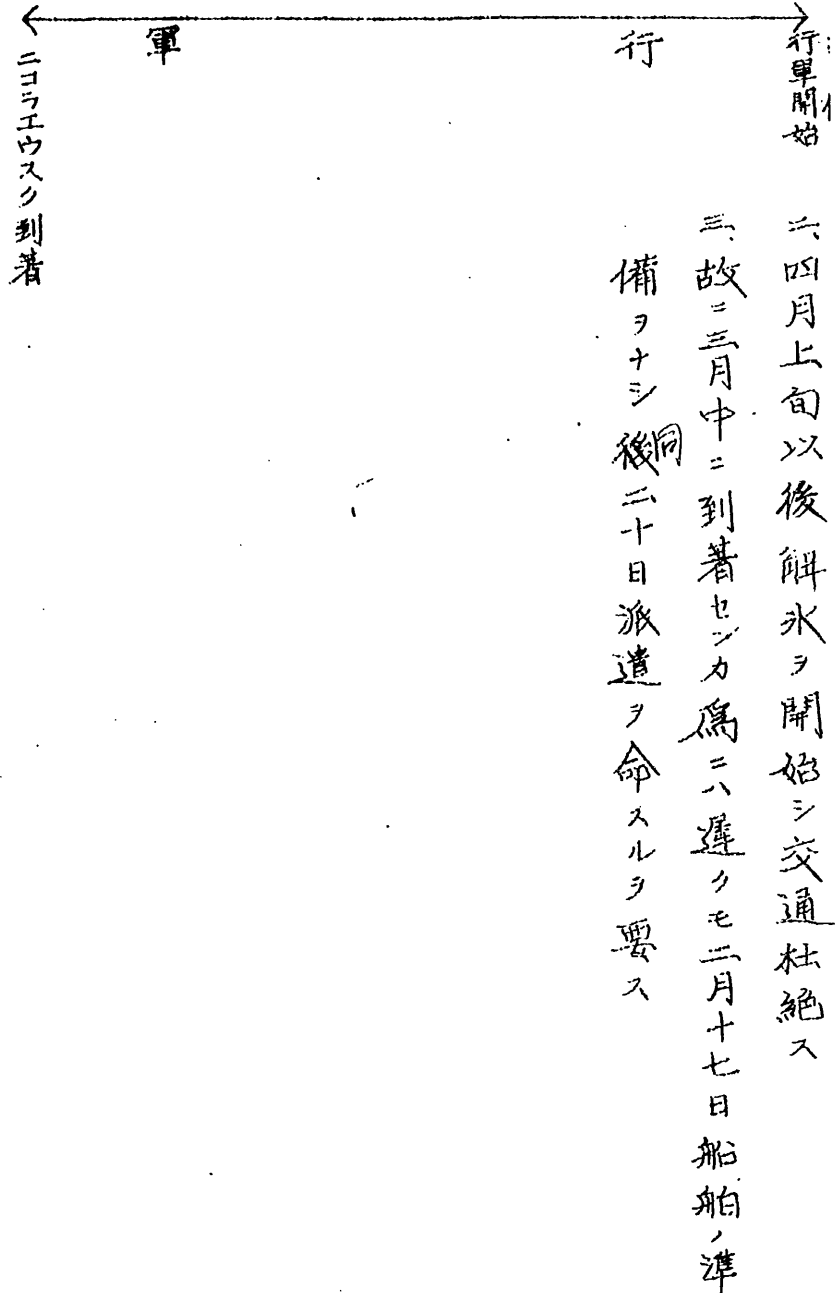 行軍開始
行
軍
ニコラエウスク到著
二、四月上旬以後解氷ヲ開始シ交通杜絶ス
三、故ニ三月中ニ到著センカ為ニハ遅クモ二月十七日船舶ノ準
備ヲナシ同後二十日派遣ヲ命スルヲ要ス